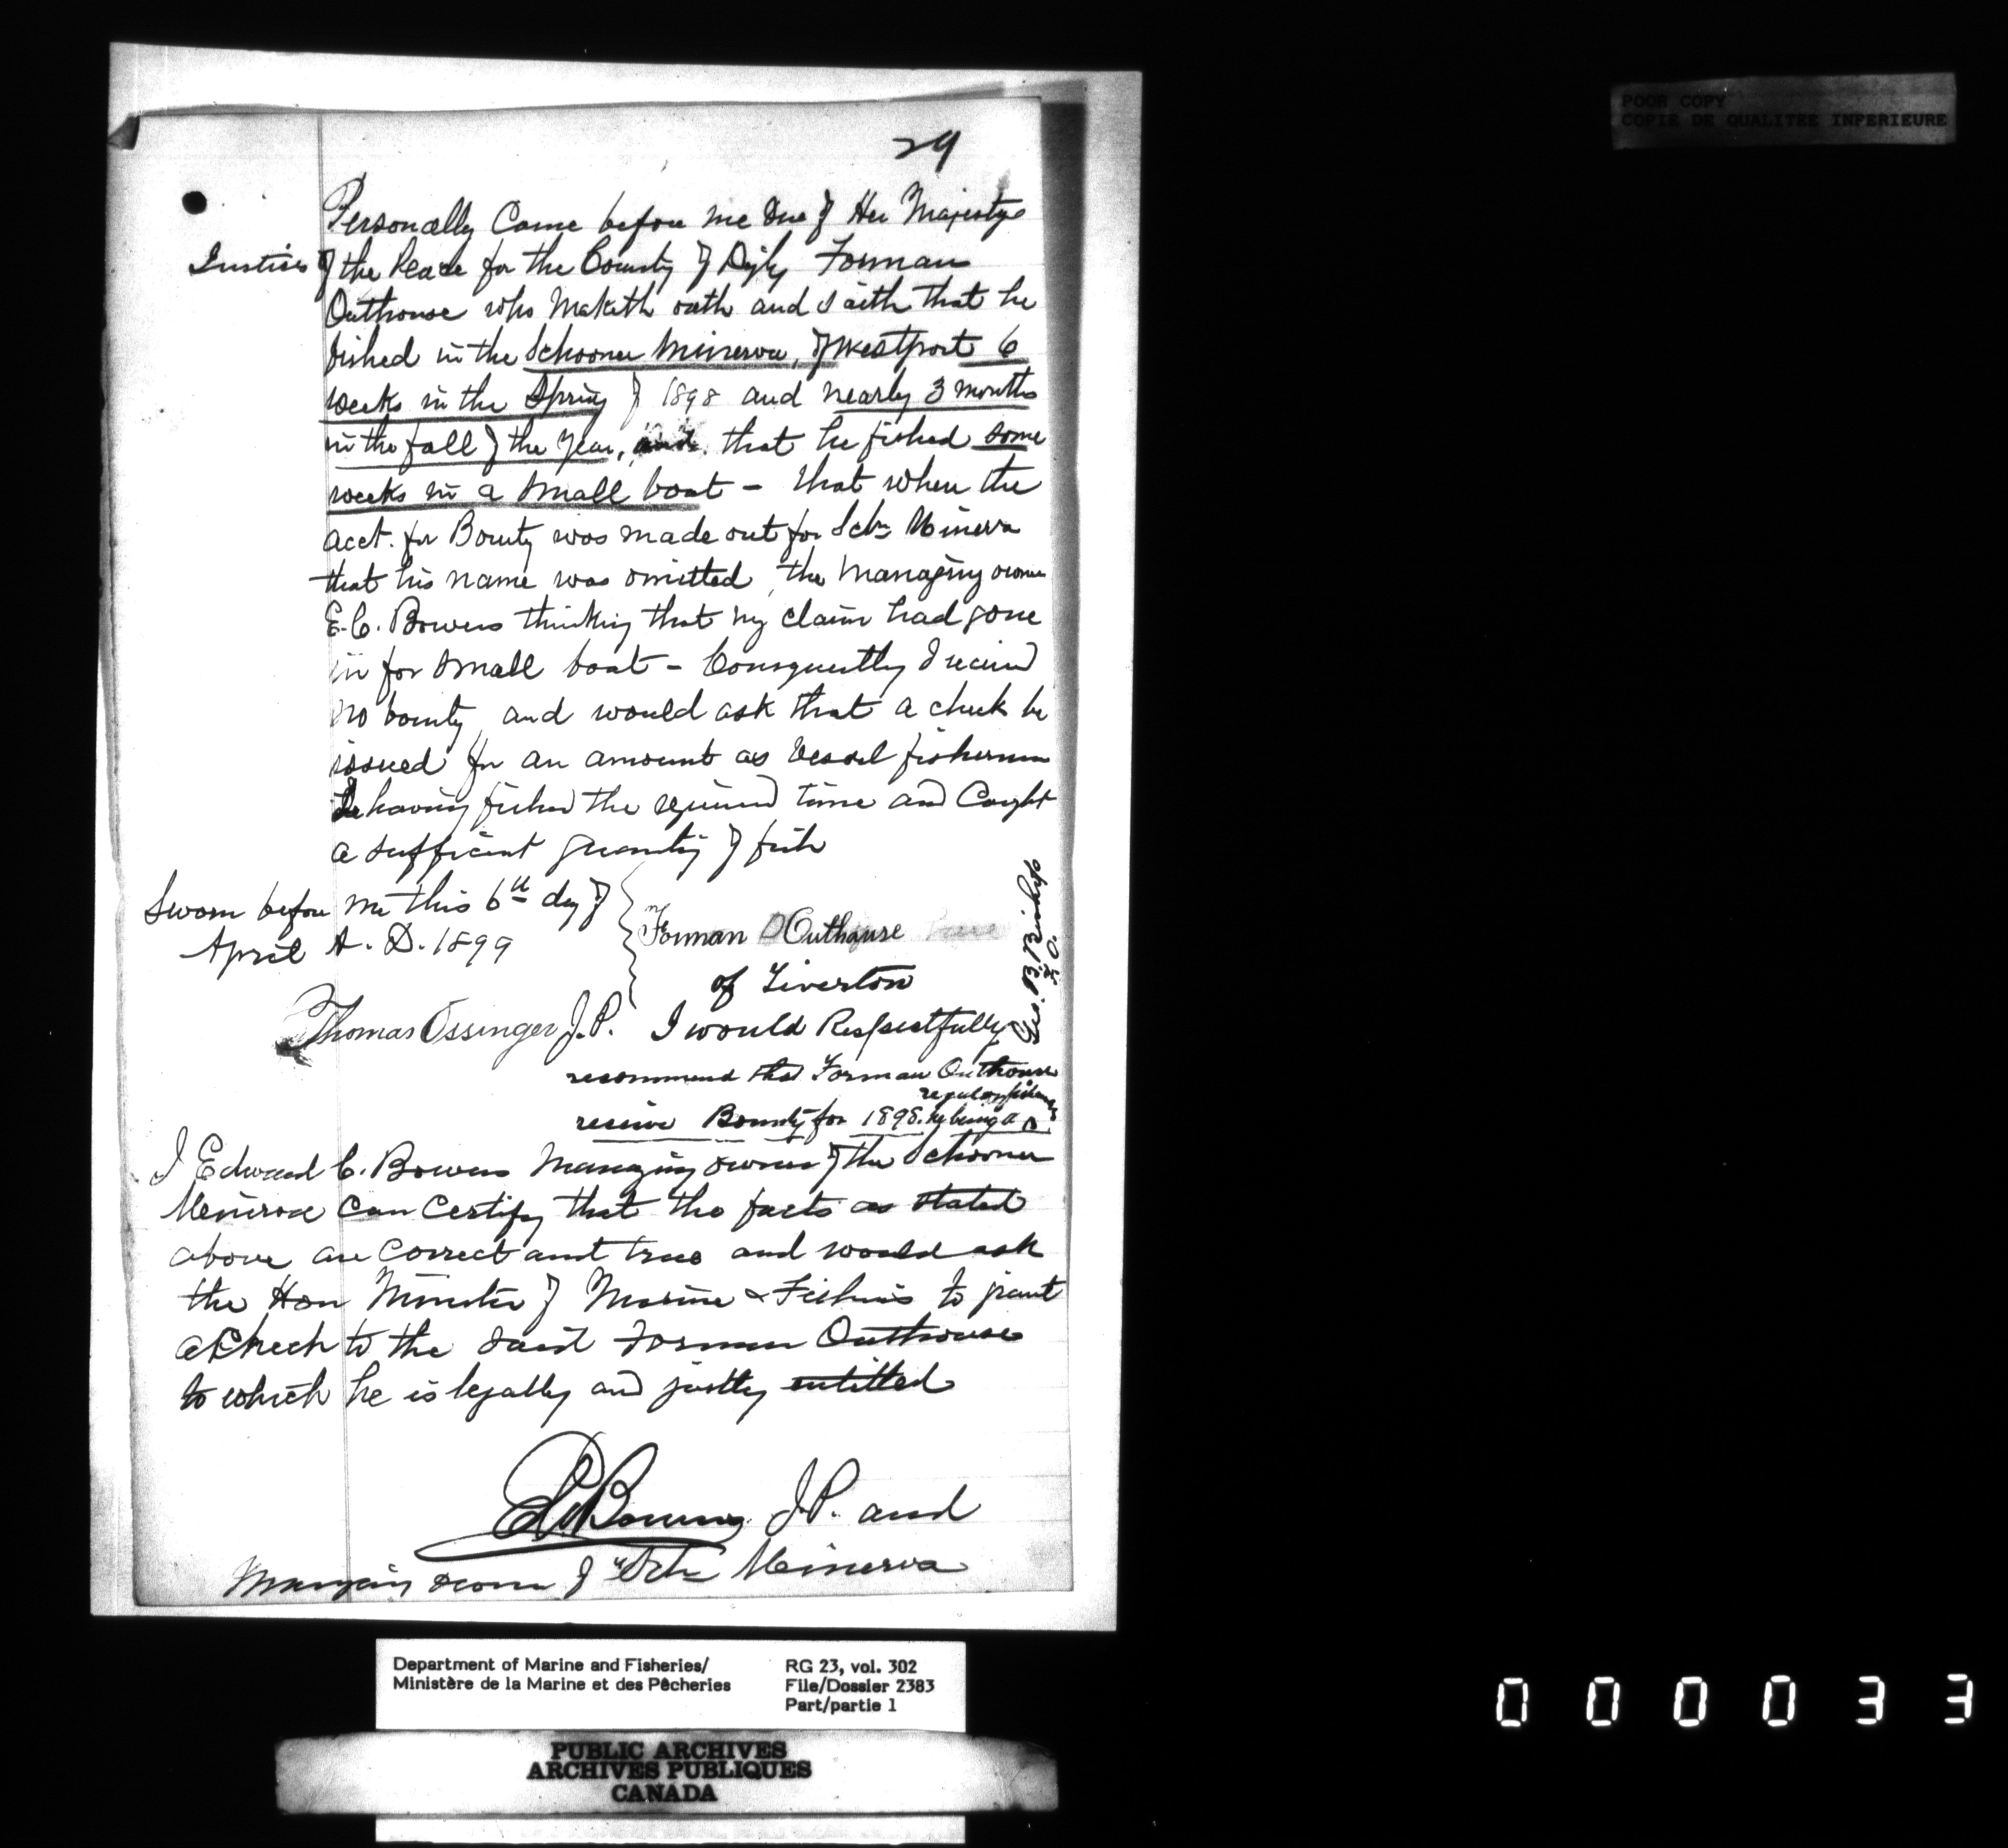 29
Personally Came before me One of Her Majestys
Justices of the Peace for the County of Digby Forman
Outhouse who Maketh oath and Saith that he
fished in the Schooner Minerva, of Westport 6
weeks in the Spring of 1898 and nearly 3 months
in the fall of the year, and that he fished some
weeks in a small boat - that when the
acct. for Bounty was made out for Schr Minerva
that his name was omitted, the Managing owner
E. C. Bowers thinking that my claim had gone
in for small boat - Consequently I received
no bounty and would ask that a check be
issued for an amount as Vessel fisherman
having fished the required time and Caught
a sufficient quantity of fish
Sworn before me this 6th day of
April A. D. 1899
Forman Outhouse
of Tiverton
Thomas Ossinger J.P.
I would Respectfully
recommend that Forman Outhouse
receive Bounty for 1898. he being a
regular fisherman
Geo. B. Bishop
F.O.
I Edward C. Bowers Managing owner of the Schooner
Minerva Can Certify that the facts as stated
above are correct and true and would ask
the Hon Minister of Marine & Fisheries to grant
a Check to the said Forman Outhouse
to which he is legally and justly entitled
E C Bowers J.P. and
Managing owner of Schr Minerva
POOR COPY
COPIE DE QUALITEE INFERIEURE
Department of Marine and Fisheries/
Ministère de la Marine et des Pêcheries
RG 23, vol. 302
File/Dossier 2383
Part/partie 1
PUBLIC ARCHIVES
ARCHIVES PUBLIQUES
CANADA
000033